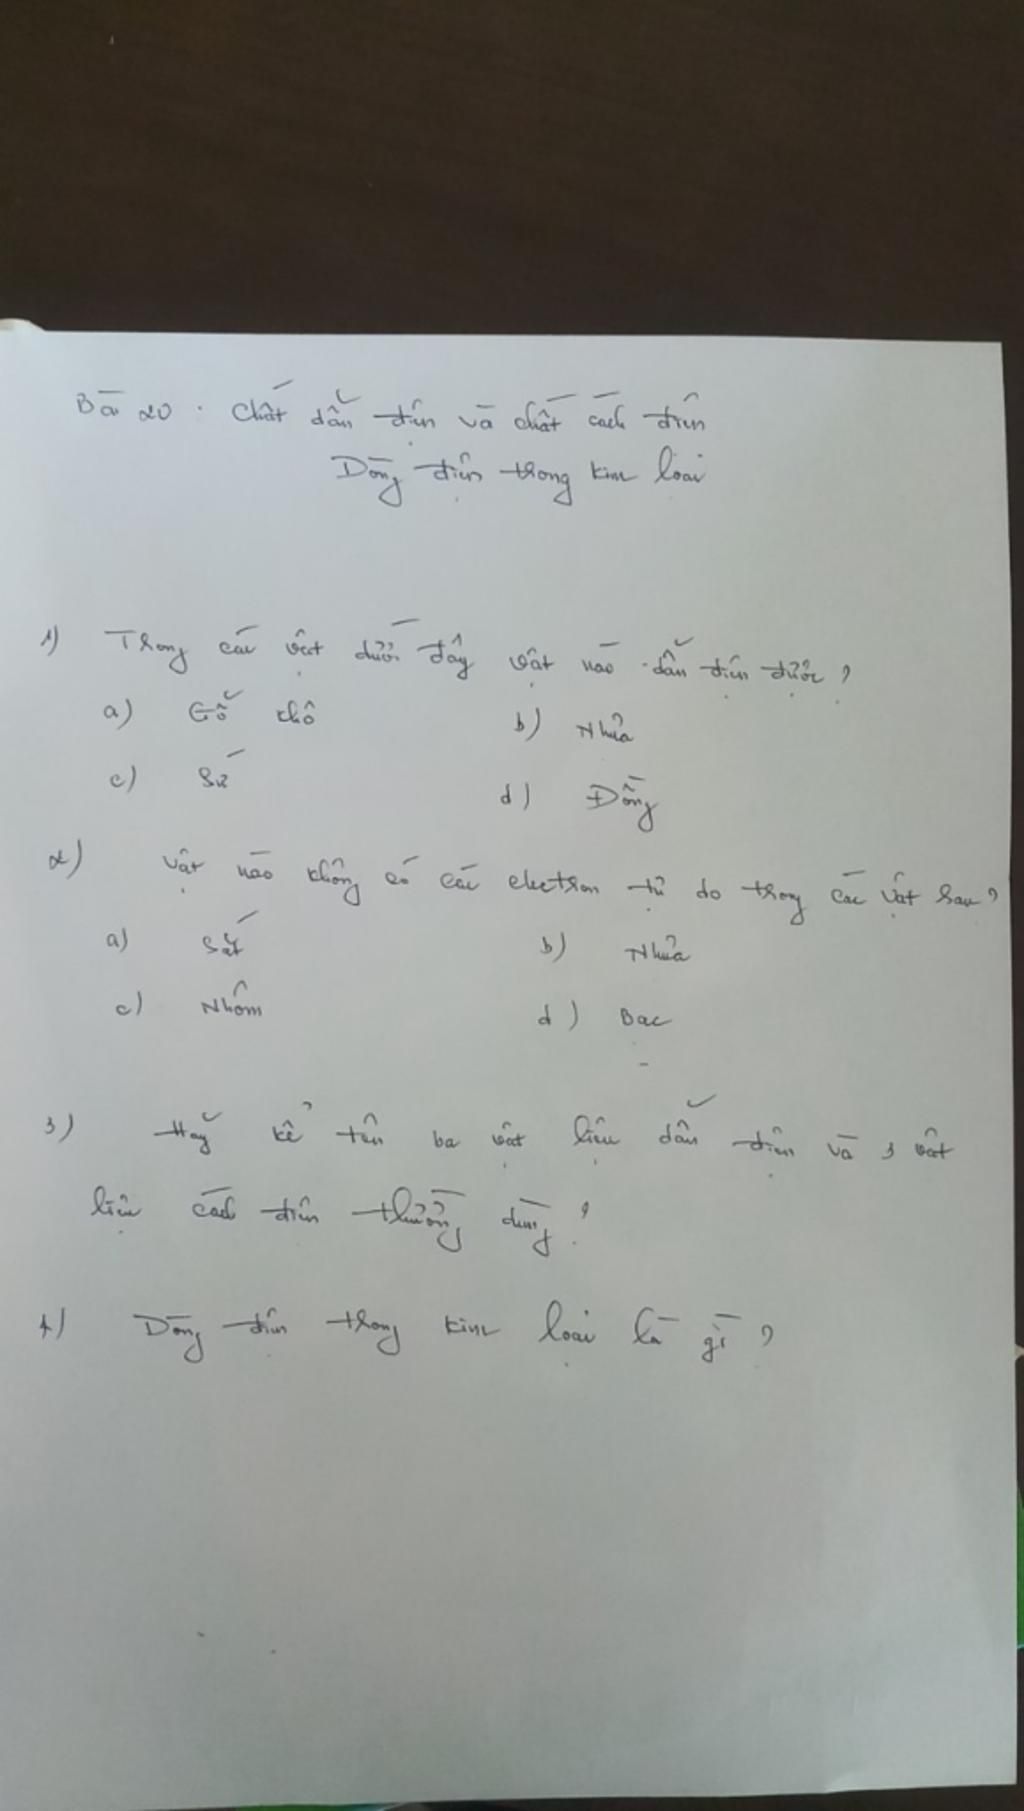 Bài 20 . Chất dẫn điện và chất cách điện
Dòng điện trong kim loại
1) Trong các vật dưới đây vật nào dẫn điện được ?
a) Gỗ khô b) Nhựa
c) Sứ d) Đồng
2) Vật nào không có các electron tự do trong các vật sau ?
a) Sắt b) Nhựa
c) Nhôm d) Bạc
3) Hãy kể tên ba vật liệu dẫn điện và 3 vật
liệu cách điện thường dùng ?
4) Dòng điện trong kim loại là gì ?